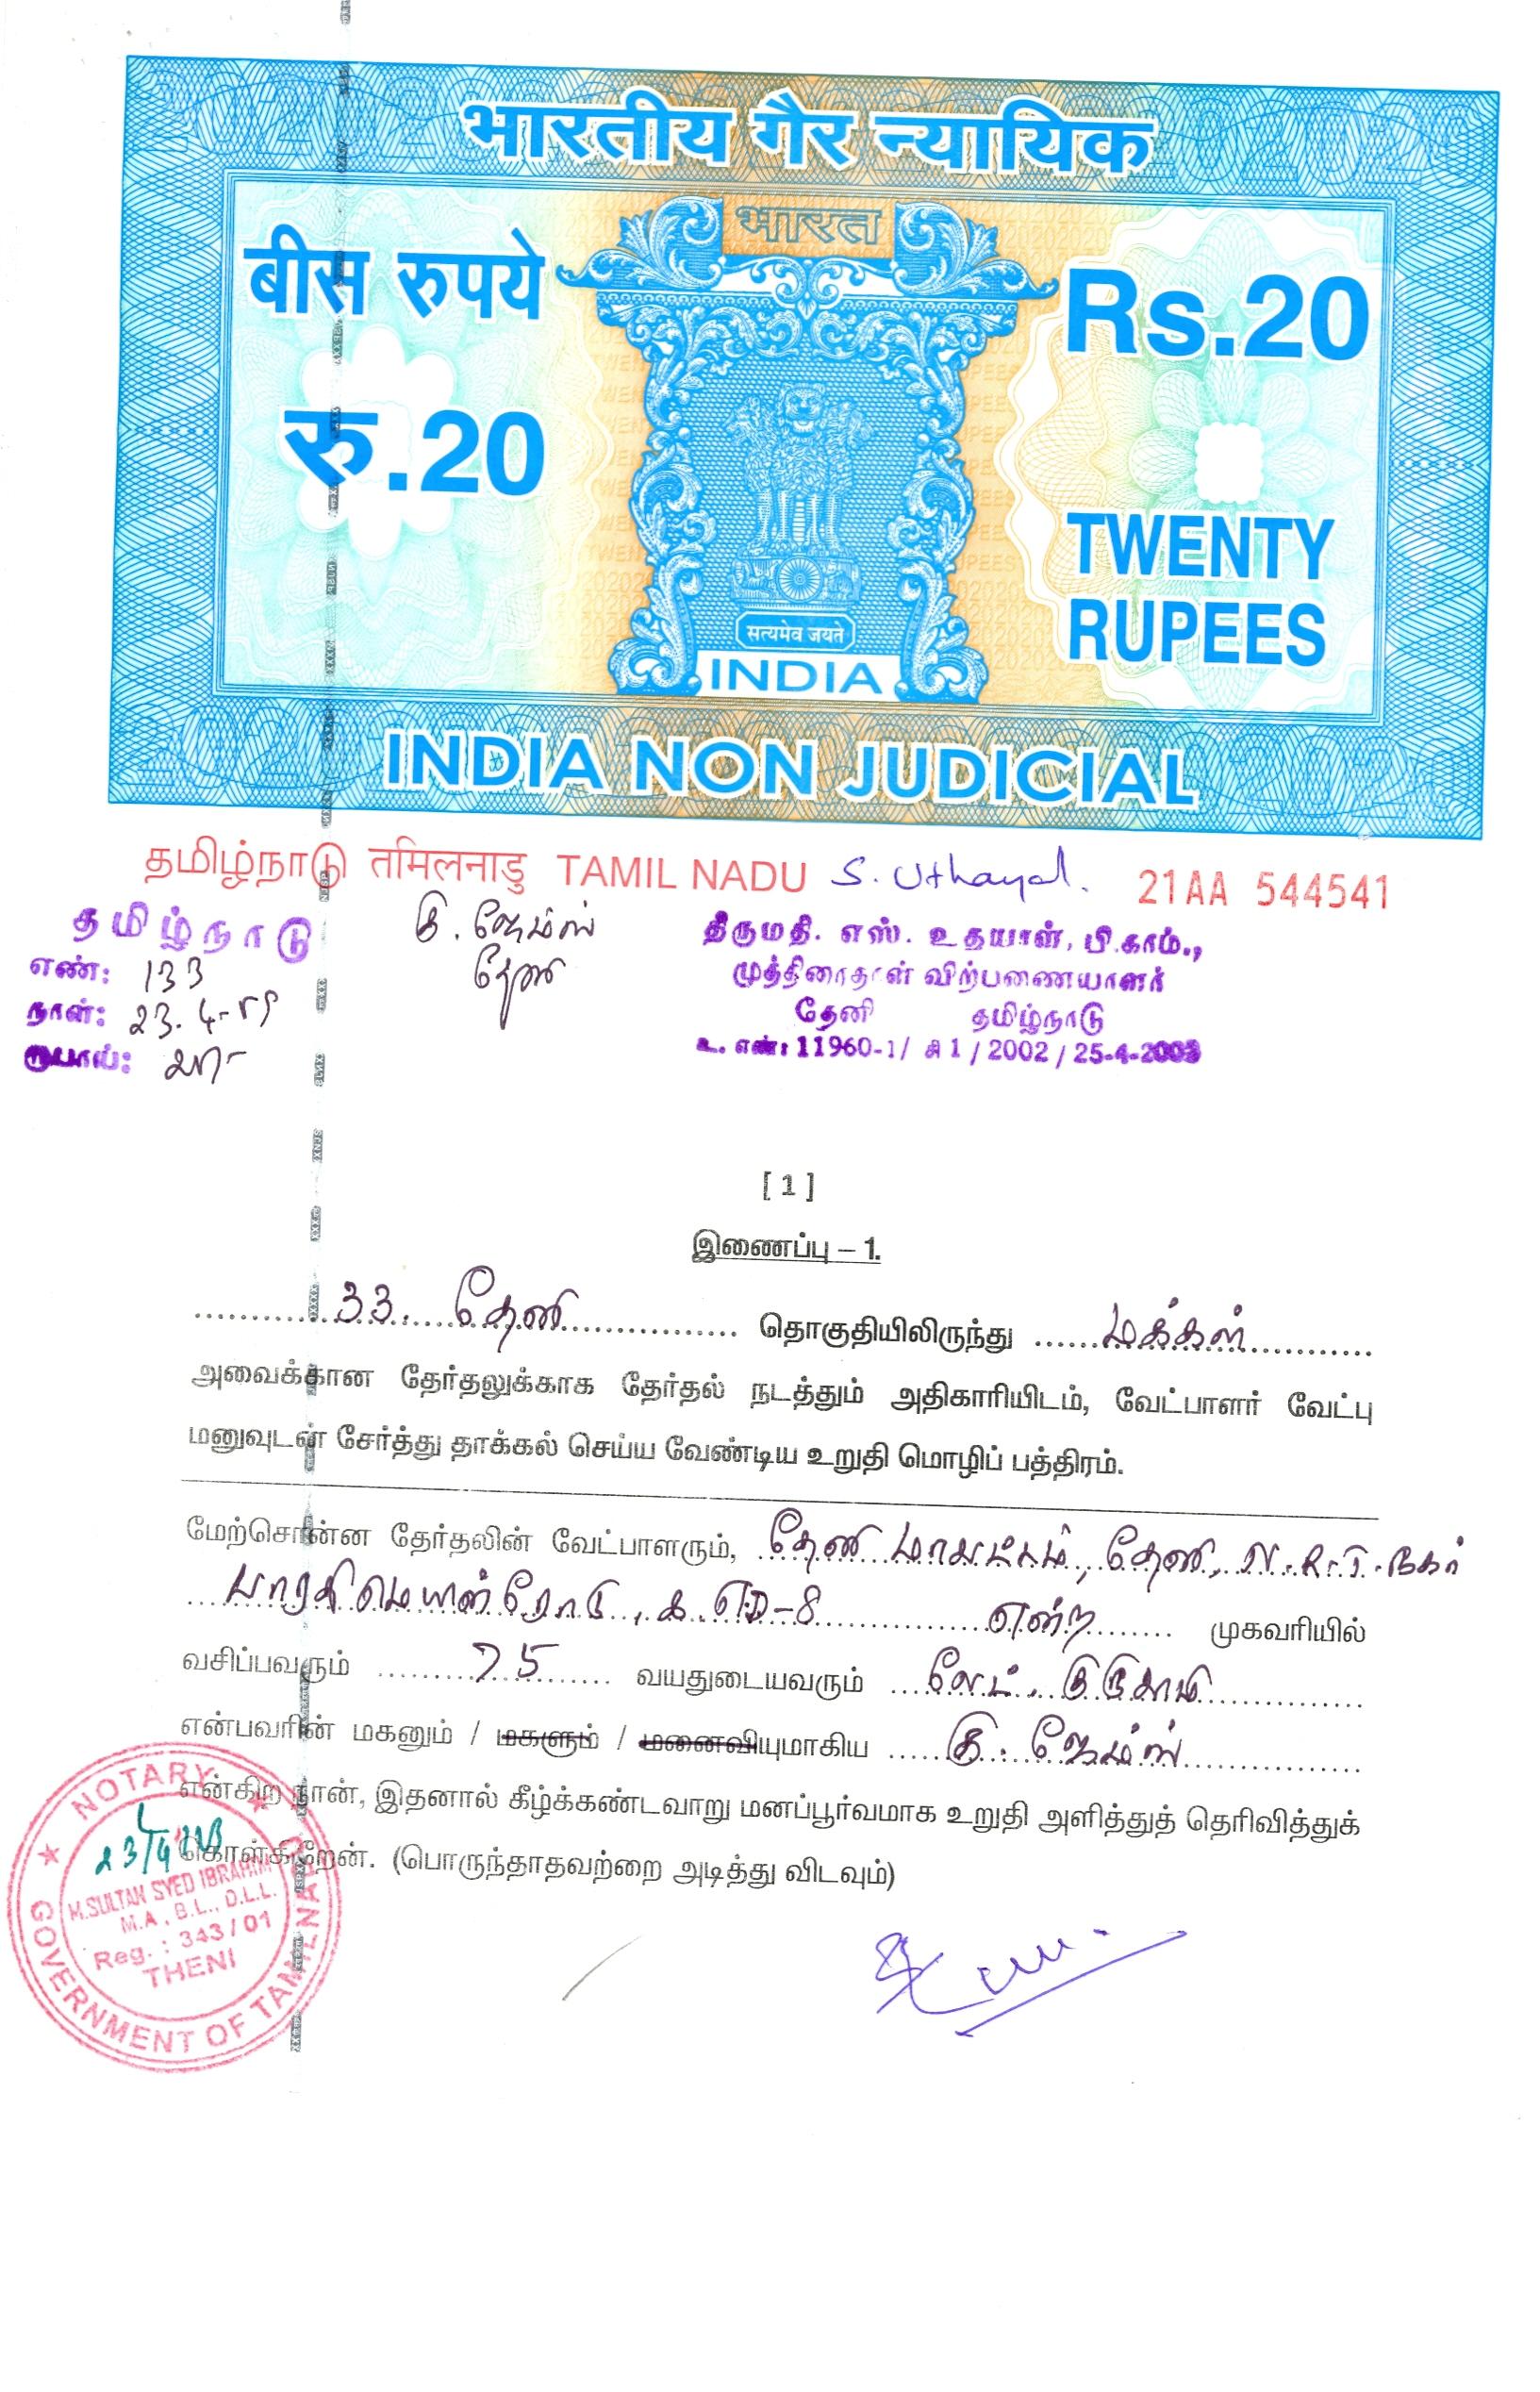 भारतीय गैर न्यायिक
भारत
बीस रुपये
Rs.20
रु.20
TWENTY
RUPEES
सत्यमेव जयते
INDIA
INDIA NON JUDICIAL
தமிழ்நாடு तमिलनाडु TAMIL NADU S. Uthayal. 21AA 544541
தமிழ்நாடு
எண்: 133
நாள்: 23.4-09
ரூபாய்: 20/-
கு. ஜேம்ஸ்
தேனி
திருமதி. எஸ். உதயாள், பி.காம்.,
முத்திரைதாள் விற்பணையாளர்
தேனி தமிழ்நாடு
உ. எண்: 11960-1/ சி1 / 2002 / 25-4-2002
[ 1 ]
இணைப்பு – 1.
33. தேனி தொகுதியிலிருந்து மக்கள்
அவைக்கான தேர்தலுக்காக தேர்தல் நடத்தும் அதிகாரியிடம், வேட்பாளர் வேட்பு
மனுவுடன் சேர்த்து தாக்கல் செய்ய வேண்டிய உறுதி மொழிப் பத்திரம்.
மேற்சொன்ன தேர்தலின் வேட்பாளரும், தேனி மாவட்டம், தேனி, N.R.T. நகர்
பாரதி மெயின் ரோடு, க.எண்-8 என்ற முகவரியில்
வசிப்பவரும் 75 வயதுடையவரும் லேட். குருசாமி
என்பவரின் மகனும் / மகளும் / மனைவியுமாகிய கு. ஜேம்ஸ்
என்கிற நான், இதனால் கீழ்க்கண்டவாறு மனப்பூர்வமாக உறுதி அளித்துத் தெரிவித்துக்
கொள்கிறேன். (பொருந்தாதவற்றை அடித்து விடவும்)
NOTARY
M.SULTAN SYED IBRAHIM
M.A., B.L., D.L.L.
Reg. : 343/01
THENI
GOVERNMENT OF TAMILNADU